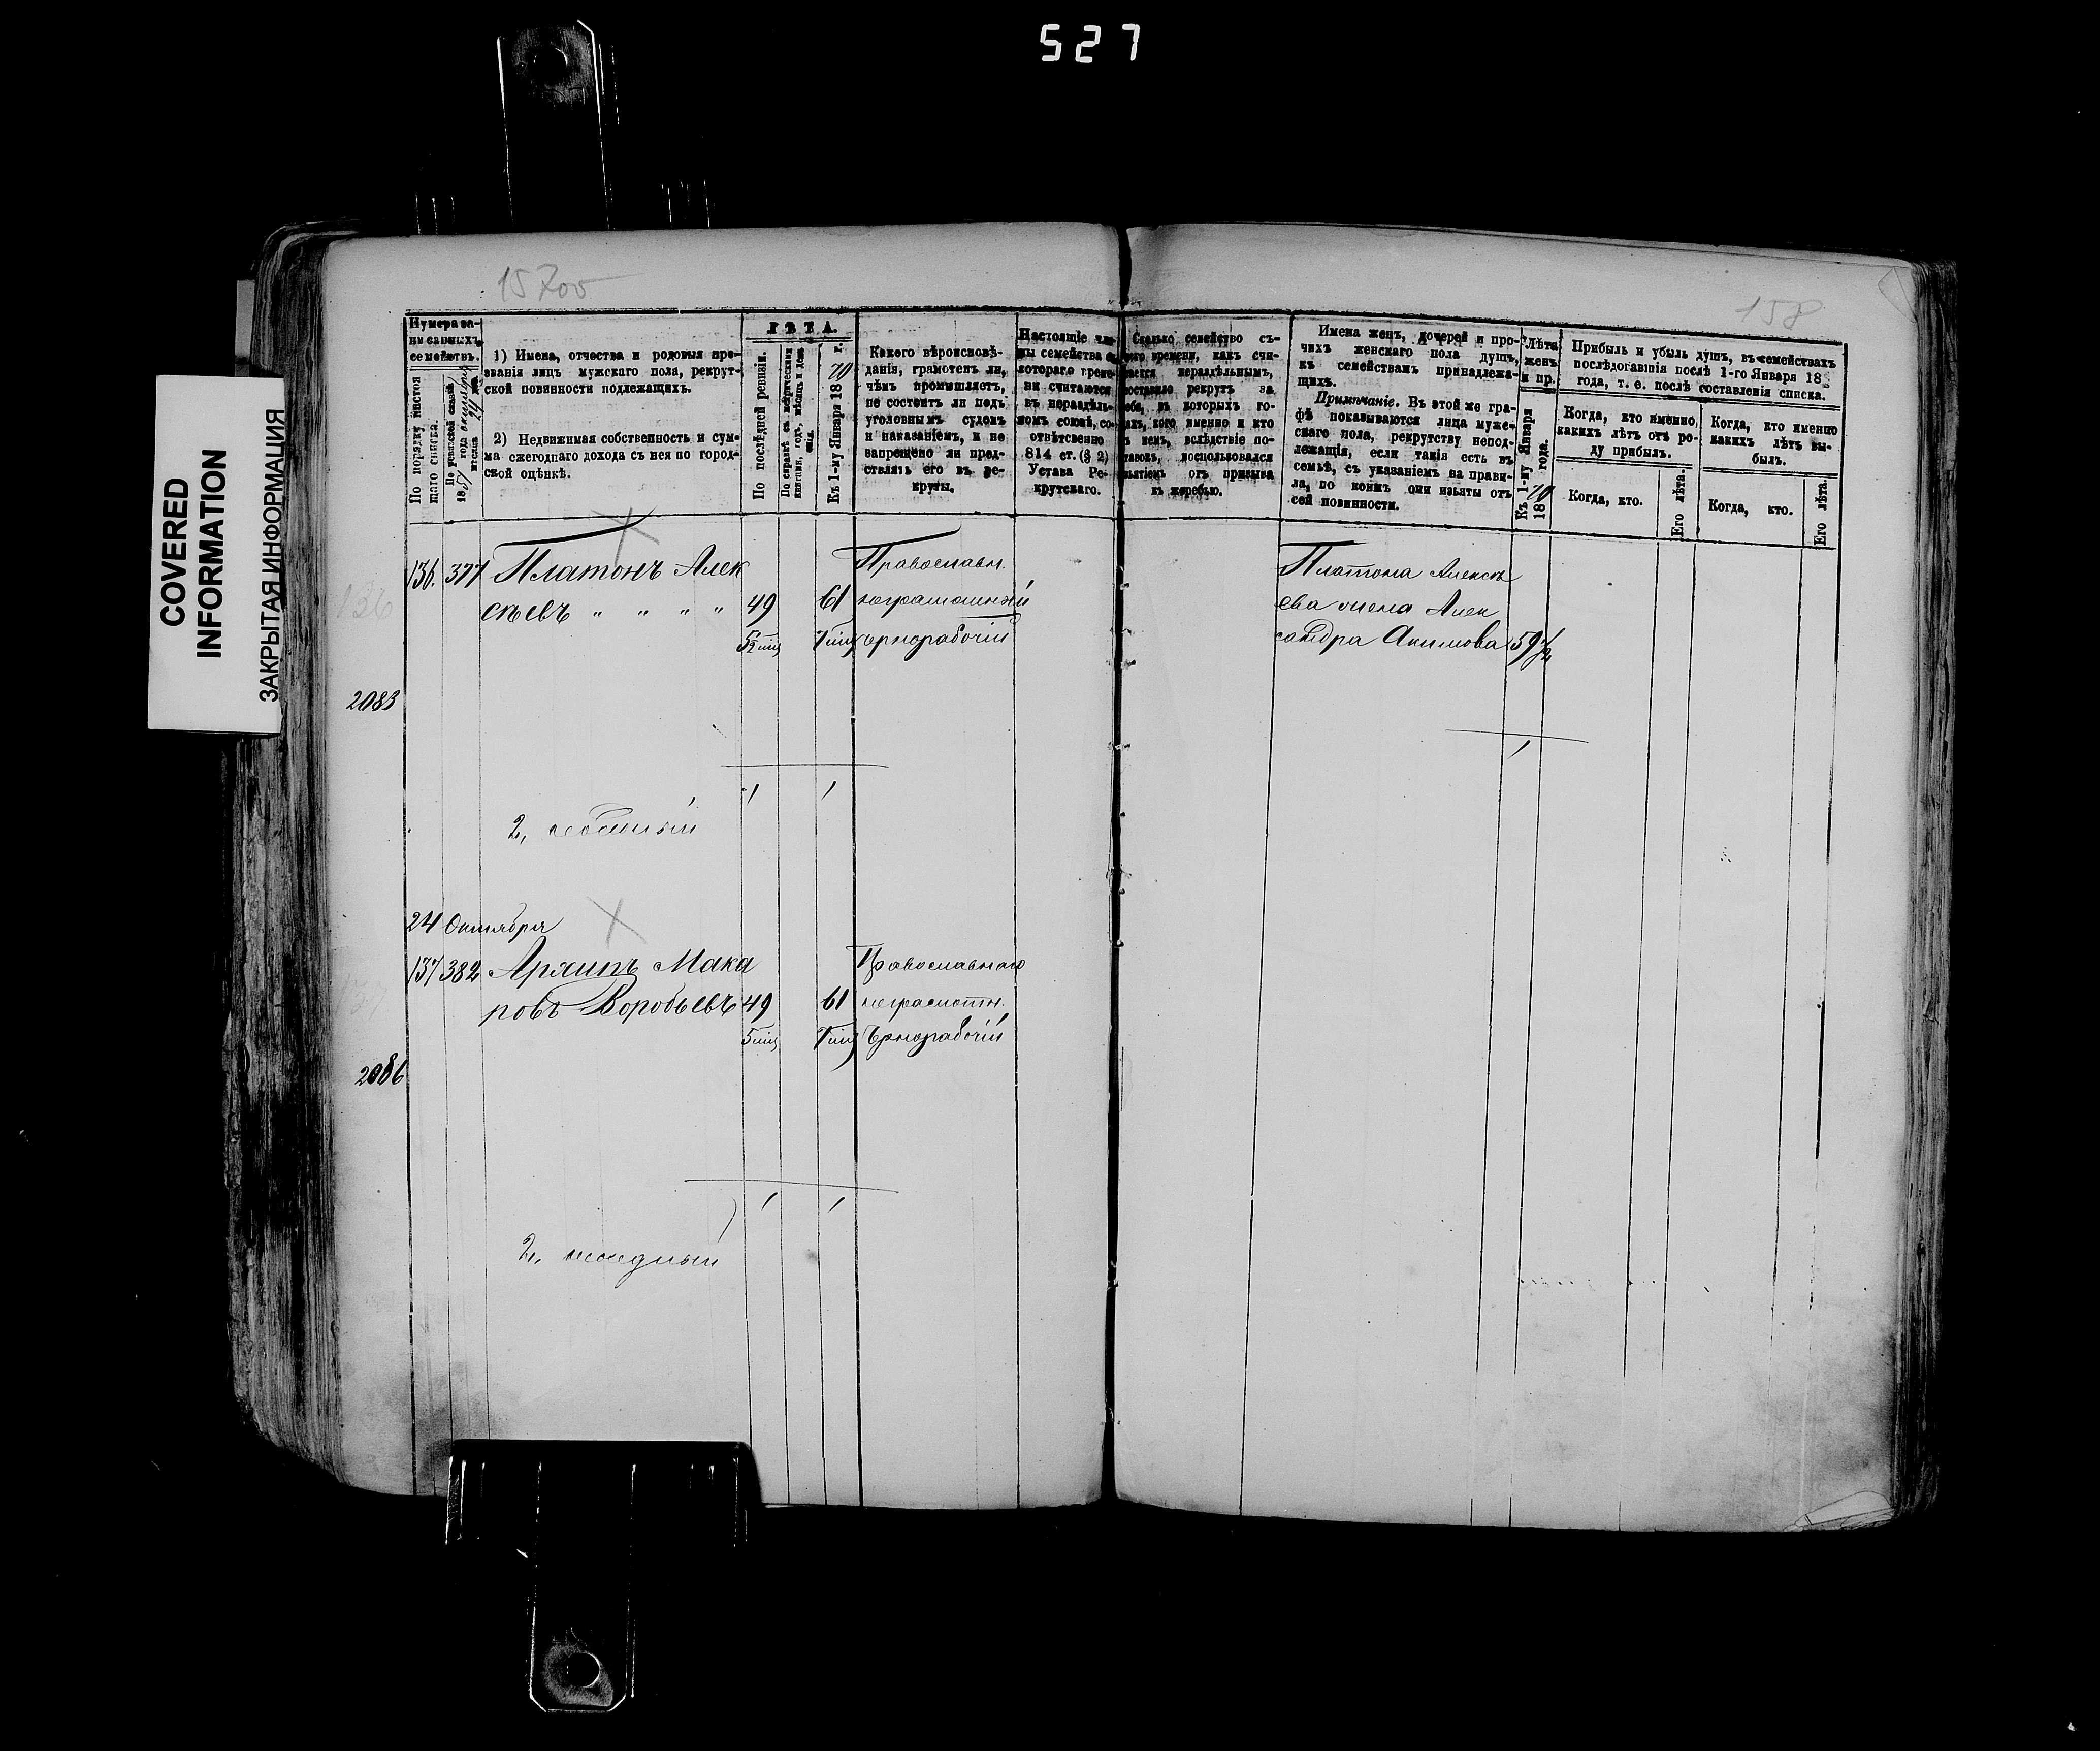 527
COVERED
INFORMATION
ЗАКРЫТАЯ ИНФОРМАЦИЯ
15700
158
Нумера за-
писанныхъ
семействъ.
По порядку настоя
щаго списка.
По ревизской сказкѣ
185 года
мѣсяца 24 дня
1) Имена, отчества и родовыя про-
званія лицъ мужскаго пола, рекрут-
ской повинности подлежащихъ.
2) Недвижимая собственность и сум-
ма ежегоднаго дохода съ нея по город-
ской оцѣнкѣ.
ЛѢТА.
По послѣдней ревизіи.
По справкѣ съ метрическими
книгами, годъ, мѣсяцъ и день
Къ 1-му Января 1870 г.
Какого вѣроисповѣ-
данія, грамотенъ ли,
чѣмъ промышляетъ,
не состоитъ ли подъ
уголовнымъ судомъ
и наказаніемъ, и не
запрещено ли пред-
ставлять его въ ре-
круты.
Настоящіе чле-
ны семейства
котораго
считаются
въ нераздѣль-
номъ союзѣ, со-
отвѣтственно
814 ст. (§ 2)
Устава Ре-
крутскаго.
Сколько семейство съ
времени, какъ счи-
тается нераздѣльнымъ,
поставило рекрутъ за
себя, въ которыхъ го-
дахъ, кого именно и кто
въ немъ, вслѣдствіе по-
воспользовался
изъятіемъ отъ призыва
къ жеребью.
Имена женъ, дочерей и про-
чихъ женскаго пола душъ,
къ семействамъ принадлежа-
щихъ.
Примѣчаніе. Въ этой же гра-
фѣ показываются лица муже-
скаго пола, рекрутству непод-
лежащія, если такія есть въ
семьѣ, съ указаніемъ на прави-
ла, по коимъ они изъяты отъ
сей повинности.
Лѣта
женъ
и пр.
Къ 1-му Января
1870 года.
Прибыль и убыль душъ, въ семействахъ
послѣдовавшія послѣ 1-го Января 18
года, т. е. послѣ составленія списка.
Когда, кто именно,
какихъ лѣтъ отъ ро-
ду прибылъ.
Когда, кто именно
какихъ лѣтъ вы-
былъ.
Когда, кто.
Его лѣта.
Когда, кто.
Его лѣта.
136. 377 Платонъ Алек Православн.
136
сѣевъ " " " " 49 61 неграмотный
чернорабочій
Платона Алексѣ
ева жена Алек
сандра Акимова 59 1/2
2083
1 1 1
24 Октября
137 382 Архипъ Мака Православнаго
137
ровъ Воробьевъ 49 61 неграмотн.
Чернорабочій
2086
1 1